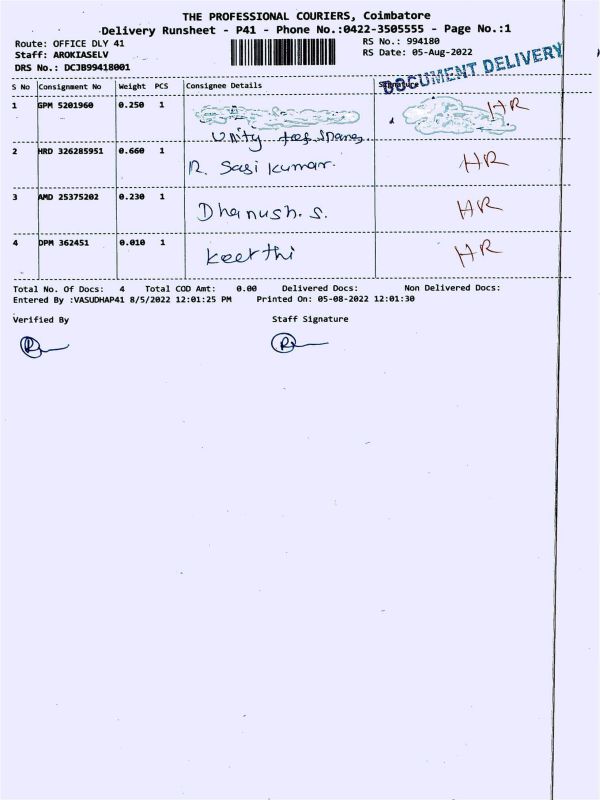 THE PROFESSIONAL COURIERS, Coimbatore
Delivery Runsheet - P41 - Phone No.:0422-3505555 - Page No.:1
Route: OFFICE DLY 41
RS No.: 994180
Staff: AROKIASELV
RS Date: 05-Aug-2022
DRS No.: DCJB99418001
DOCUMENT DELIVERY
S No Consignment No Weight PCS Consignee Details Signature
1 GPM 5201960 0.250 1 HR
Unity
2 HRD 326285951 0.660 1 R. Sasi kumar. HR
3 AMD 25375202 0.230 1 Dhanush. s. HR
4 DPM 362451 0.010 1 keerthi HR
Total No. Of Docs: 4 Total COD Amt: 0.00 Delivered Docs: Non Delivered Docs:
Entered By :VASUDHAP41 8/5/2022 12:01:25 PM Printed On: 05-08-2022 12:01:30
Verified By Staff Signature